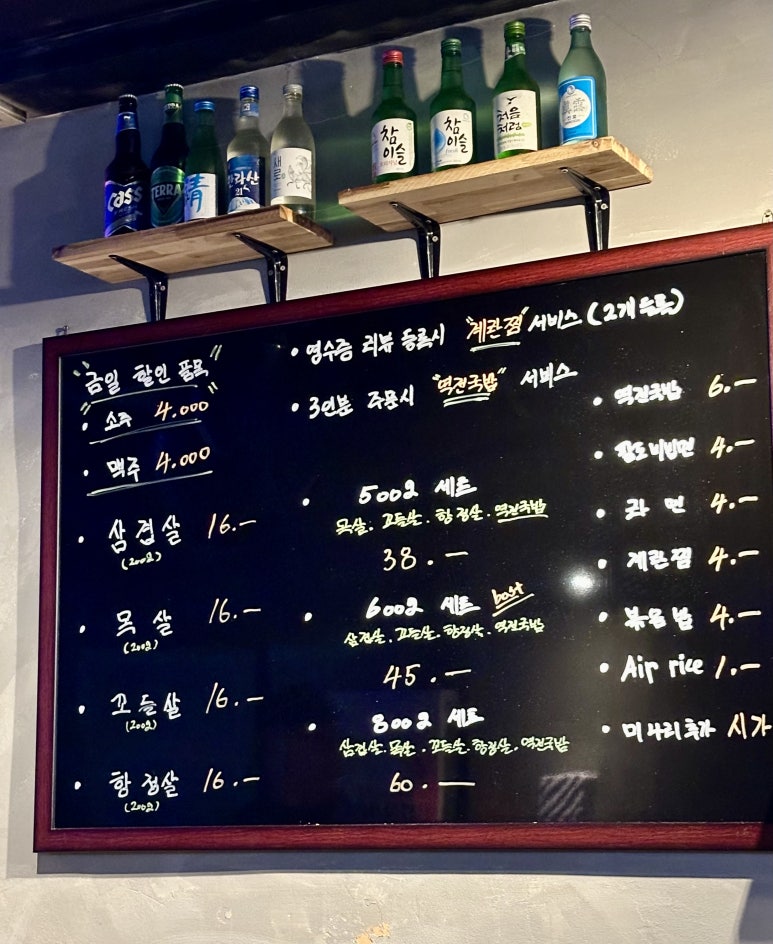 CASS
TERRA
清
한라산
새로
참이슬
참이슬
처음처럼
"금일 할인 품목"
• 소주 4.000
• 맥주 4.000
• 삼겹살 16.—
(200g)
• 목살 16.—
(200g)
• 꼬들살 16.—
(200g)
• 항정살 16.—
(200g)
• 영수증 리뷰 등록시 "계란찜" 서비스 (2개 등록)
• 3인분 주문시 "역전국밥" 서비스
• 500g 세트
목살. 꼬들살. 항정살. 역전국밥
38.—
• 600g 세트 best
삼겹살. 꼬들살. 항정살. 역전국밥
45.—
• 800g 세트
삼겹살. 목살. 꼬들살. 항정살. 역전국밥
60.—
• 역전국밥 6.—
• 비빔면 4.—
• 라면 4.—
• 계란찜 4.—
• 볶음밥 4.—
• Air rice 1.—
• 미나리추가 시가